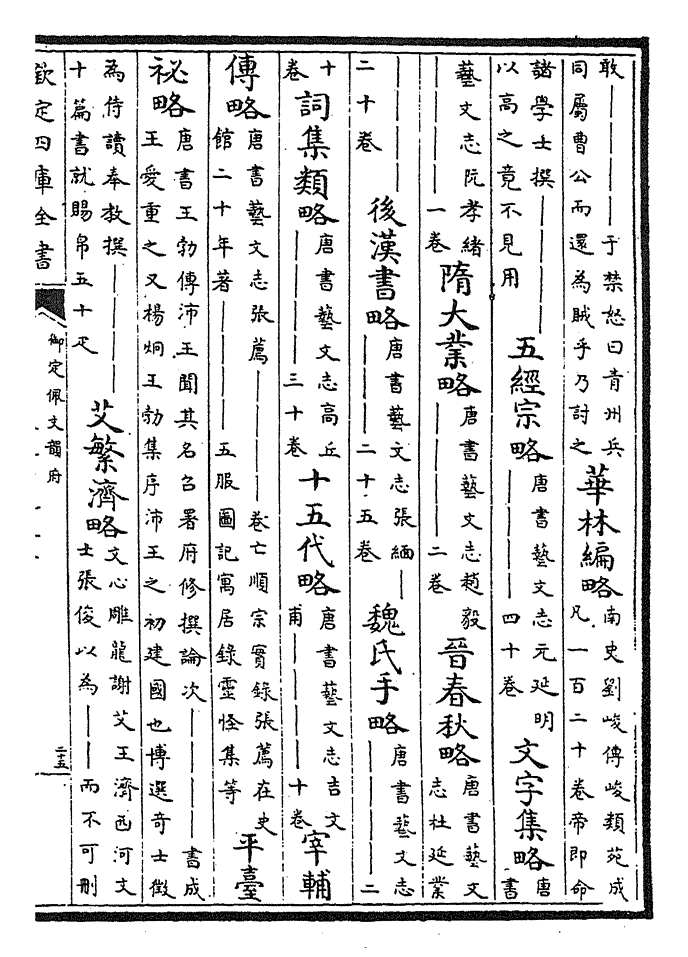 敢————于禁怒曰青州兵
同屬曹公而還為賊乎乃討之
華林編略
南史劉峻傳峻類苑成
凡一百二十卷帝即命
諸學士撰————
以高之竟不見用
五經宗略
唐書藝文志元延明
————四十卷
文字集略
唐
書
藝文志阮孝緒
————一卷
隋大業略
唐書藝文志趙毅
————二卷
晉春秋略
唐書藝文
志杜延業
————
二十卷
後漢書略
唐書藝文志張緬—
———二十五卷
魏氏手略
唐書藝文志
————二
十
卷
詞集類略
唐書藝文志高丘
————三十卷
十五代略
唐書藝文志吉文
甫————十卷
宰輔
傳略
唐書藝文志張薦————卷亡順宗實錄張薦在史
館二十年著————五服圖記寓居錄靈怪集等
平臺
祕略
唐書王勃傳沛王聞其名召署府修撰論次————書成
王愛重之又楊炯王勃集序沛王之初建國也博選奇士徵
為侍讀奉教撰————
十篇書就賜帛五十疋
艾繁濟略
文心雕龍謝艾王濟西河文
士張俊以為————而不可刪
欽定四庫全書
御定佩文韻府
二五